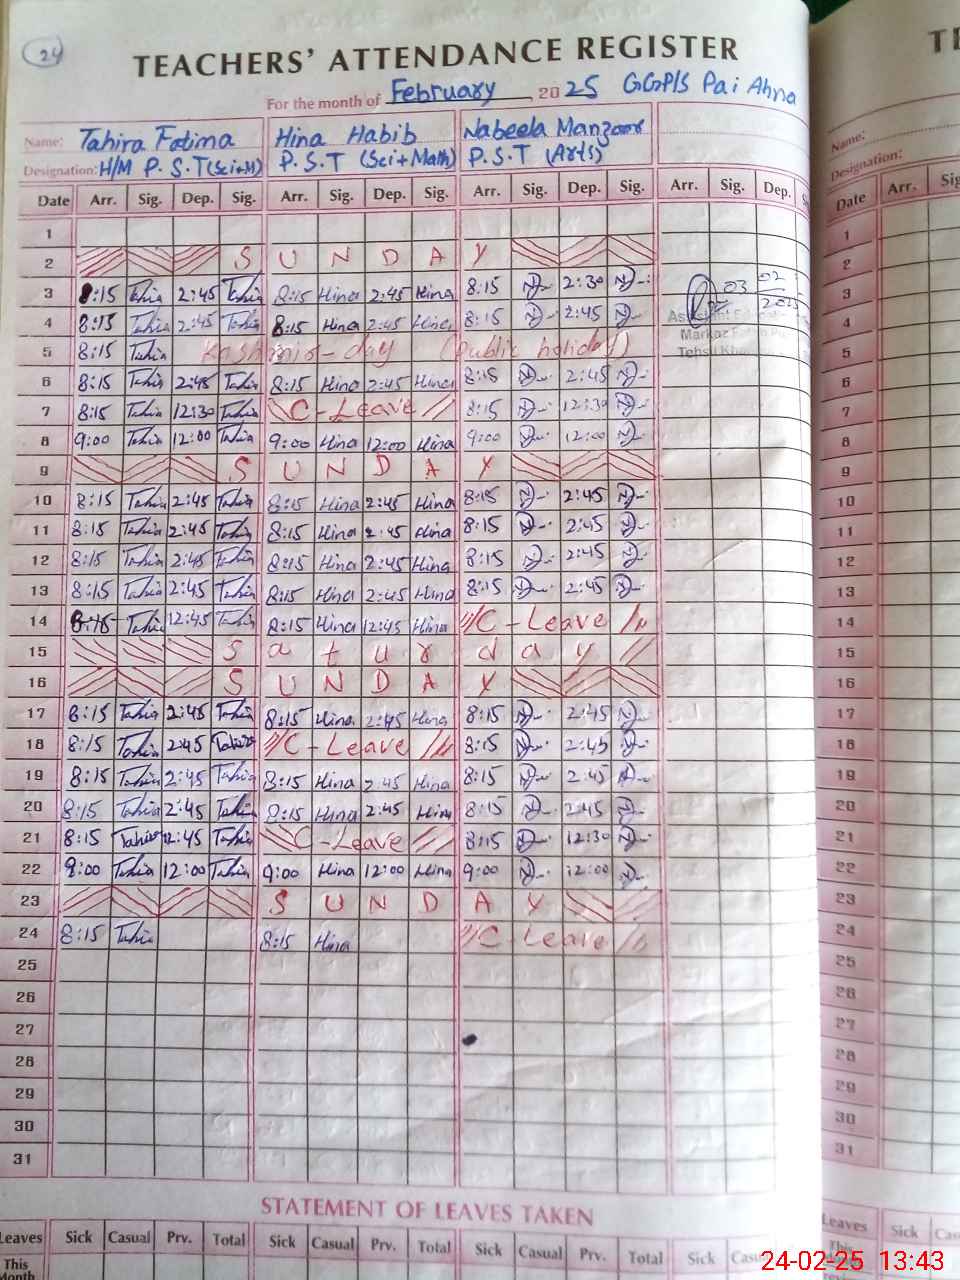 24
TEACHERS' ATTENDANCE REGISTER
For the month of February 2025 GGP/S Pai Ahna
Name: Tahira Fatima Hina Habib Nabeela Manzoor
Designation: H/M P.S.T (Sci+M) P.S.T (Sci+Math) P.S.T (Arts)
Date Arr. Sig. Dep. Sig. Arr. Sig. Dep. Sig. Arr. Sig. Dep. Sig. Arr. Sig. Dep.
1
2 S U N D A Y
3 8:15 Tahia 2:45 Tahia 8:15 Hina 2:45 Hina 8:15 2:30 03 02 2025
4 8:15 Tahia 2:45 Tahia 8:15 Hina 2:45 Hina 8:15 2:45 Assistant
Markaz
5 8:15 Tahia Kashmir-day (public holiday) Tehsil
6 8:15 Tahia 2:45 Tahia 8:15 Hina 2:45 Hina 8:15 2:45
7 8:15 Tahia 12:30 Tahia C-Leave 8:15 12:30
8 9:00 Tahia 12:00 Tahia 9:00 Hina 12:00 Hina 9:00 12:00
9 S U N D A Y
10 8:15 Tahia 2:45 Tahia 8:15 Hina 2:45 Hina 8:15 2:45
11 8:15 Tahia 2:45 Tahia 8:15 Hina 2:45 Hina 8:15 2:45
12 8:15 Tahia 2:45 Tahia 8:15 Hina 2:45 Hina 8:15 2:45
13 8:15 Tahia 2:45 Tahia 8:15 Hina 2:45 Hina 8:15 2:45
14 8:15 Tahia 12:45 Tahia 8:15 Hina 12:45 Hina C-Leave
15 S a t u r d a y
16 S U N D A Y
17 8:15 Tahia 2:45 Tahia 8:15 Hina 2:45 Hina 8:15 2:45
18 8:15 Tahia 2:45 Tahira C-Leave 8:15 2:45
19 8:15 Tahia 2:45 Tahia 8:15 Hina 2:45 Hina 8:15 2:45
20 8:15 Tahia 2:45 Tahia 8:15 Hina 2:45 Hina 8:15 2:45
21 8:15 Tahia 12:45 Tahia C-Leave 8:15 12:30
22 9:00 Tahia 12:00 Tahia 9:00 Hina 12:00 Hina 9:00 12:00
23 S U N D A Y
24 8:15 Tahia 8:15 Hina C-Leave
25
26
27
28
29
30
31
STATEMENT OF LEAVES TAKEN
Leaves Sick Casual Prv. Total Sick Casual Prv. Total Sick Casual Prv. Total Sick
This
Month
Name:
Designation:
Date Arr.
1
2
3
4
5
6
7
8
9
10
11
12
13
14
15
16
17
18
19
20
21
22
23
24
25
26
27
28
29
30
31
Leaves Sick
24-02-25 13:43